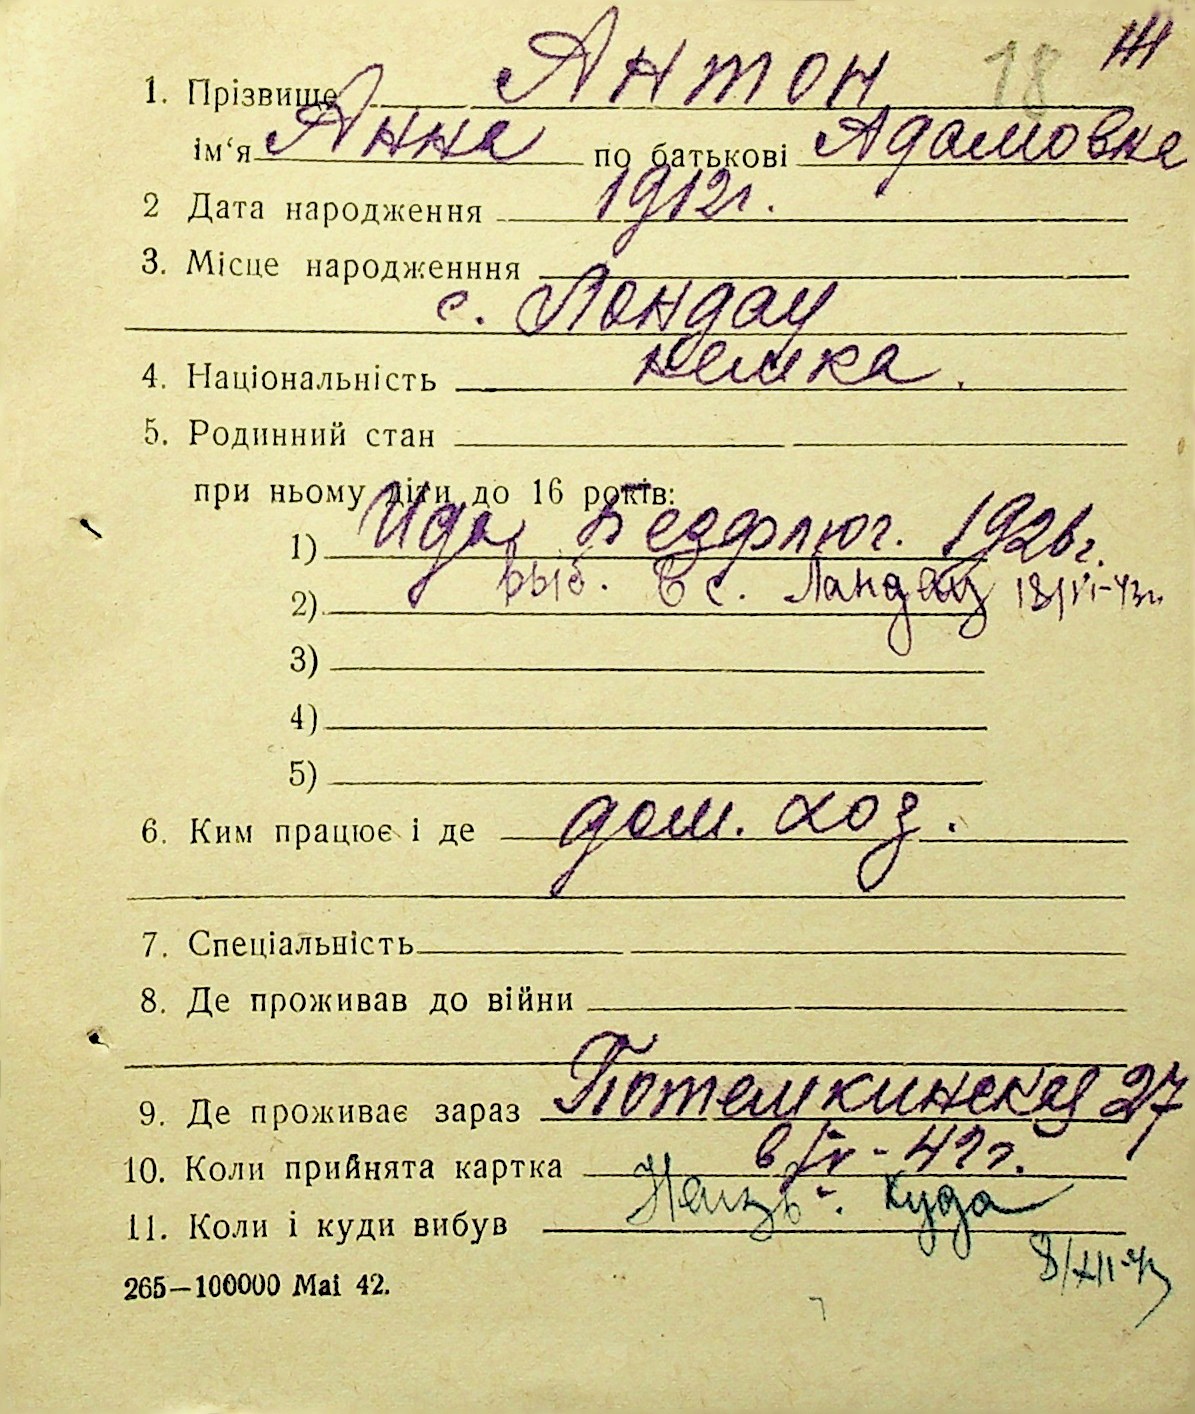 18 ТН
1. Прізвище Антон
ім'я Анна по батькові Адамовна
2 Дата народження 1912г.
3. Місце народженння
с. Ландау
4. Національність немка.
5. Родинний стан
при ньому діти до 16 років:
1) Ида Безфлюг. 1926г.
2) выб. в с. Ландау 18/VI-43г.
3)
4)
5)
6. Ким працює і де дом. хоз.
7. Спеціальність
8. Де проживав до війни
9. Де проживає зараз Потемкинская 27
10. Коли прийнята картка 6/IV-42г.
11. Коли і куди вибув Неизв. куда
265—100000 Mai 42.